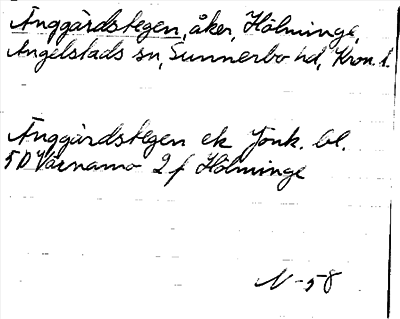 Änggärdstegen, åker, Hölminge,
Angelstads sn, Sunnerbo hd, Kron. l.
Änggärdstegen ek Jonk. bl.
5D Värnamo 2f Hölminge
N-58